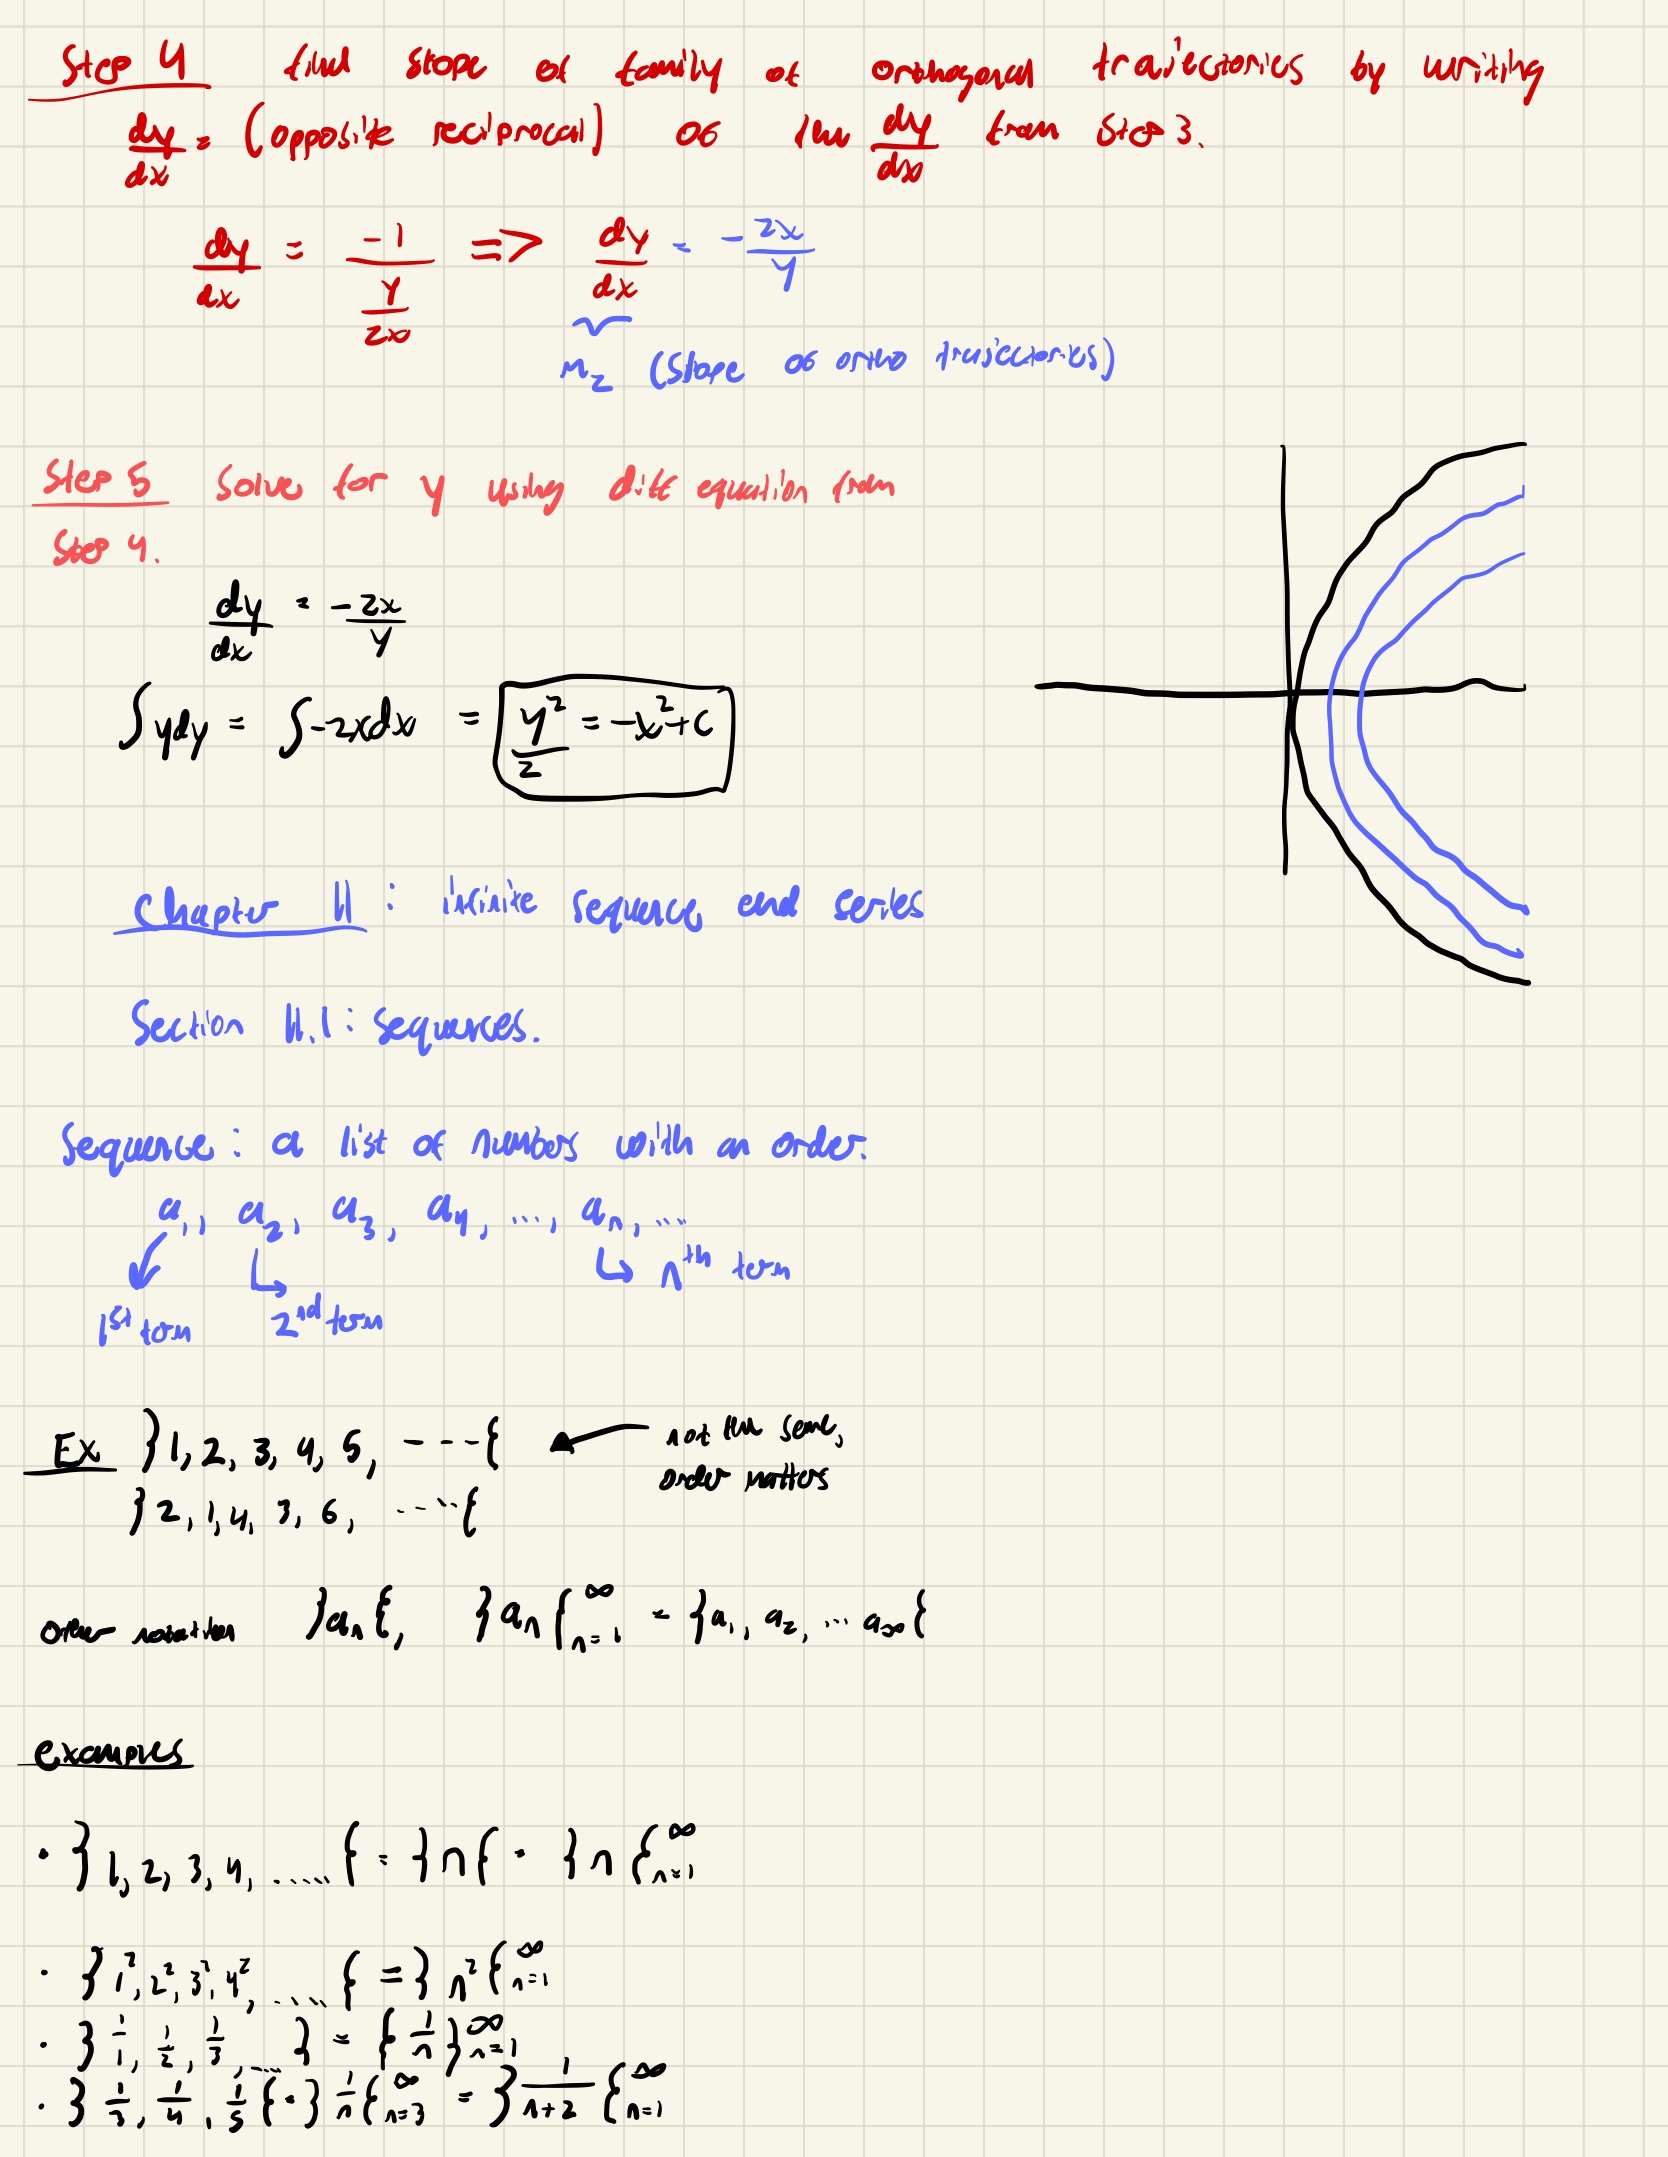 Step 4 find slope of family of orthogonal trajectories by writing
dy/dx = (opposite reciprocal) of the dy/dx from Step 3.
dy/dx = -1/(y/2x) => dy/dx = -2x/y
m₂ (slope of ortho trajectories)
Step 5 Solve for y using diff equation from
Step 4.
dy/dx = -2x/y
∫ydy = ∫-2xdx = y²/2 = -x²+c
Chapter 11: infinite sequence and series
Section 11.1: sequences.
Sequence: a list of numbers with an order.
a₁, a₂, a₃, a₄, ..., aₙ, ...
nth term
1st term 2nd term
Ex }1, 2, 3, 4, 5, ---{ not the same,
order matters
}2, 1, 4, 3, 6, ....{
other notation }aₙ{, }aₙ{ₙ₌₁^∞ = }a₁, a₂, ... a∞{
examples
· }1, 2, 3, 4, .....{ = }n{ = }n{ₙ₌₁^∞
· }1², 2², 3², 4², .....{ = }n²{ₙ₌₁^∞
· }1/1, 1/2, 1/3, ....} = {1/n}ₙ₌₁^∞
· }1/3, 1/4, 1/5{ = }1/n{ₙ₌₃^∞ = }1/(n+2){ₙ₌₁^∞